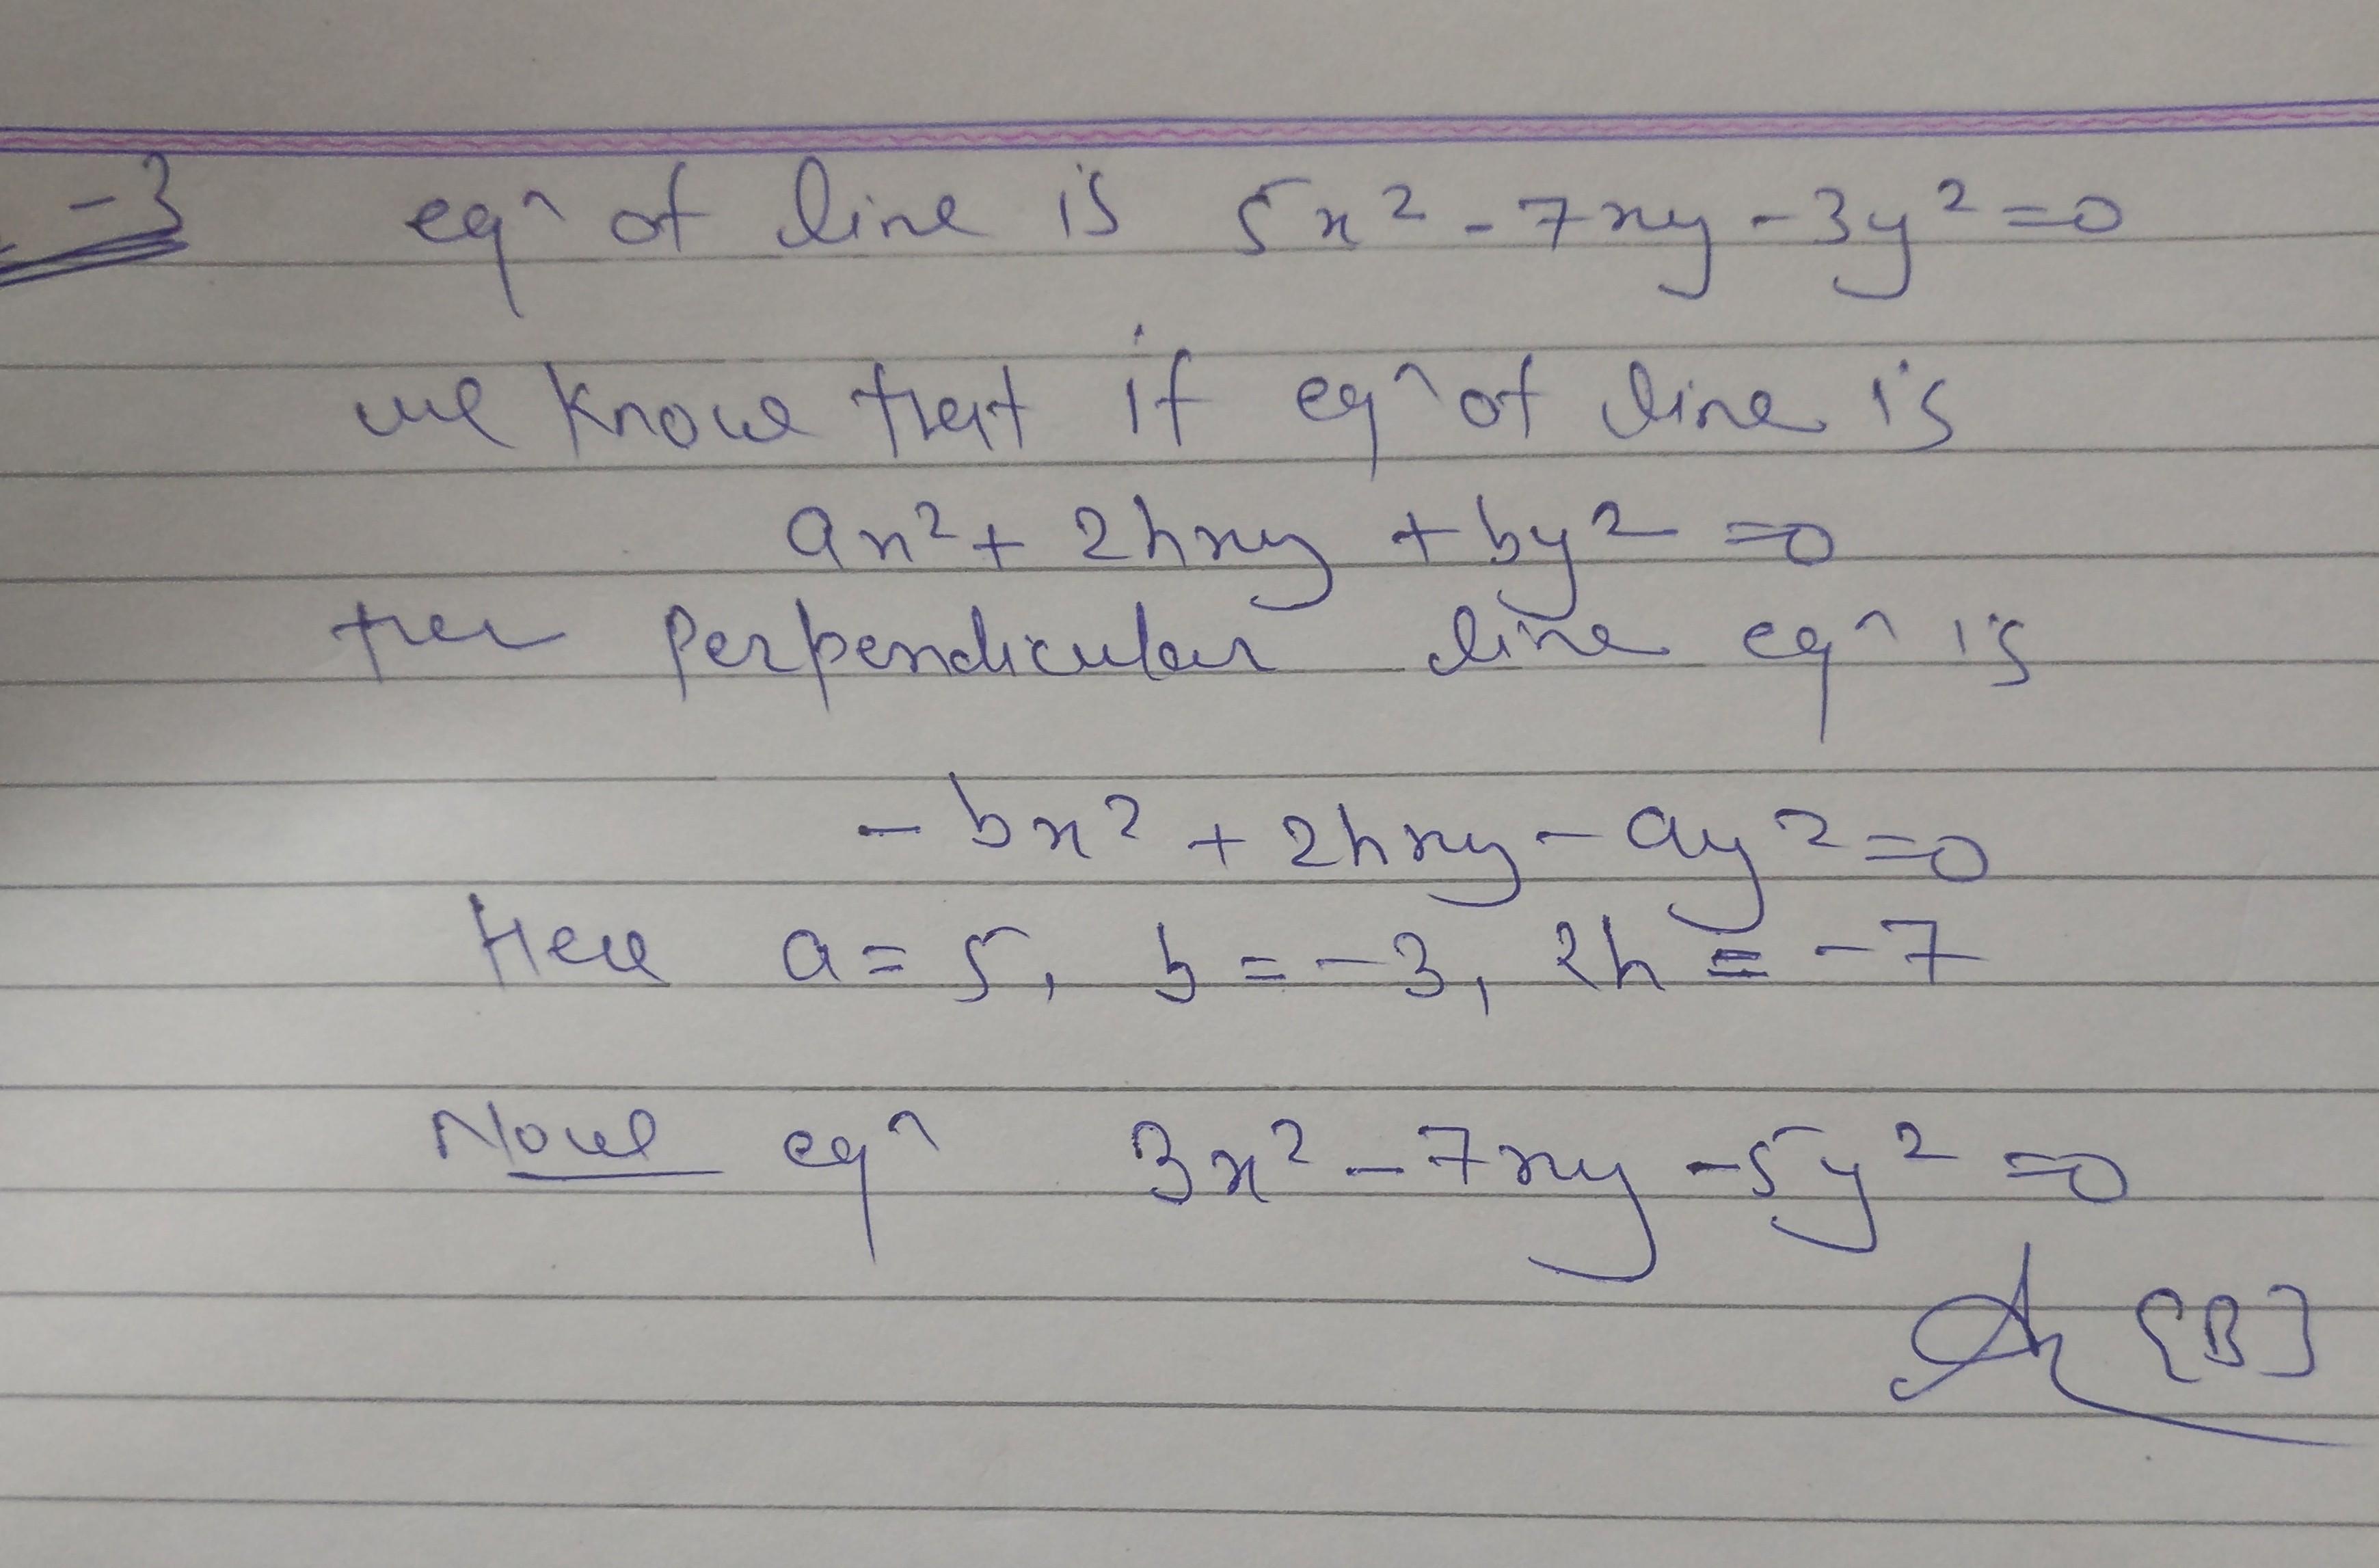 -3 eqn of line is 5x² - 7xy - 3y² = 0
we know that if eqn of line is
ax² + 2hxy + by² = 0
then perpendicular line eqn is
- bx² + 2hxy - ay² = 0
Here a = 5, b = -3, 2h = -7
Now eqn 3x² - 7xy - 5y² = 0
An [B]